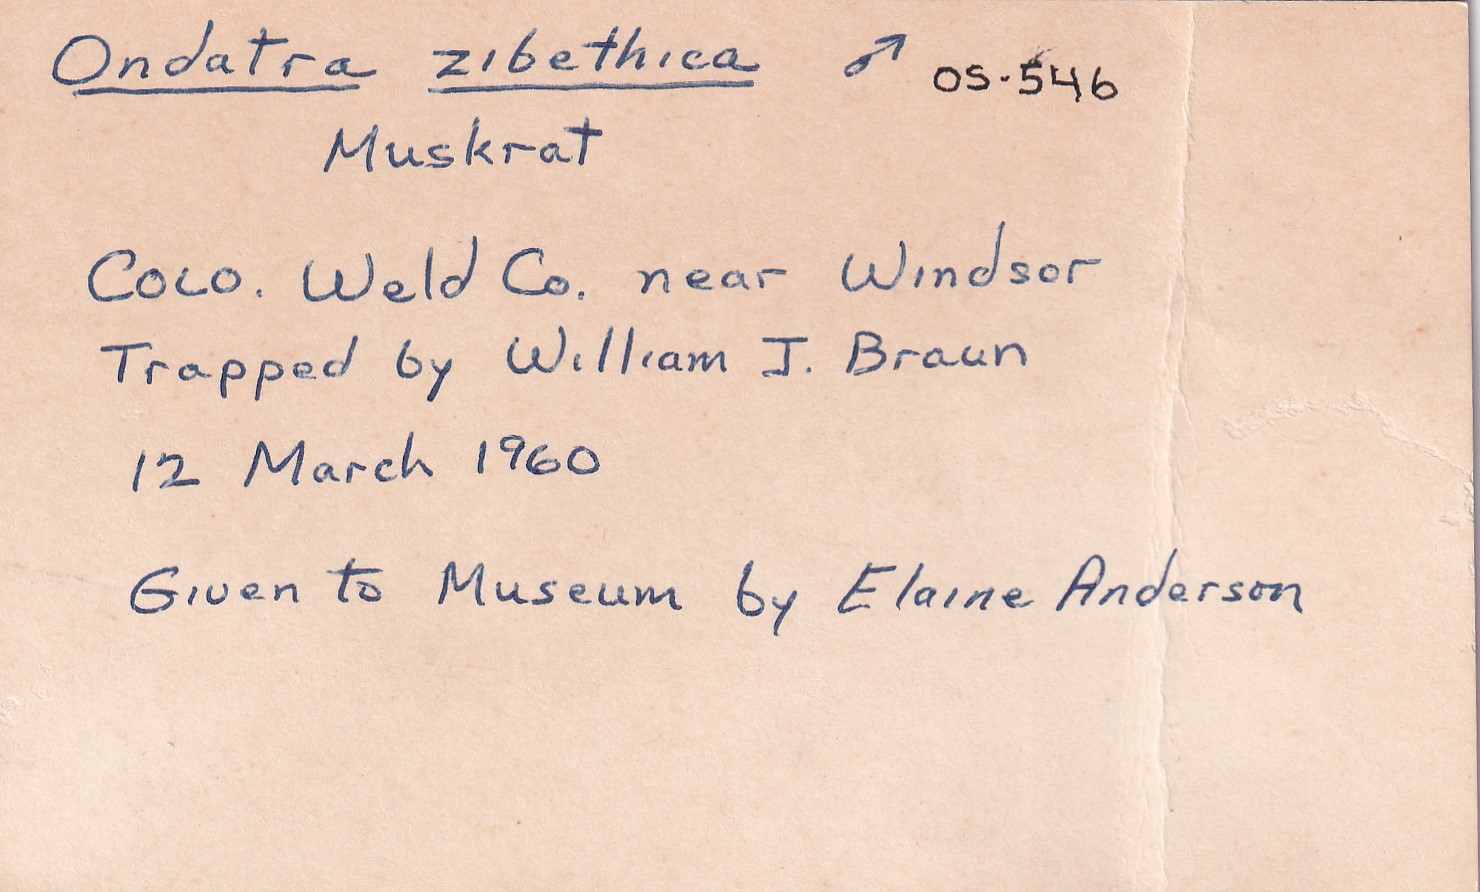 Ondatra zibethica ♂ OS-546
Muskrat
Colo. Weld Co. near Windsor
Trapped by William J. Braun
12 March 1960
Given to Museum by Elaine Anderson